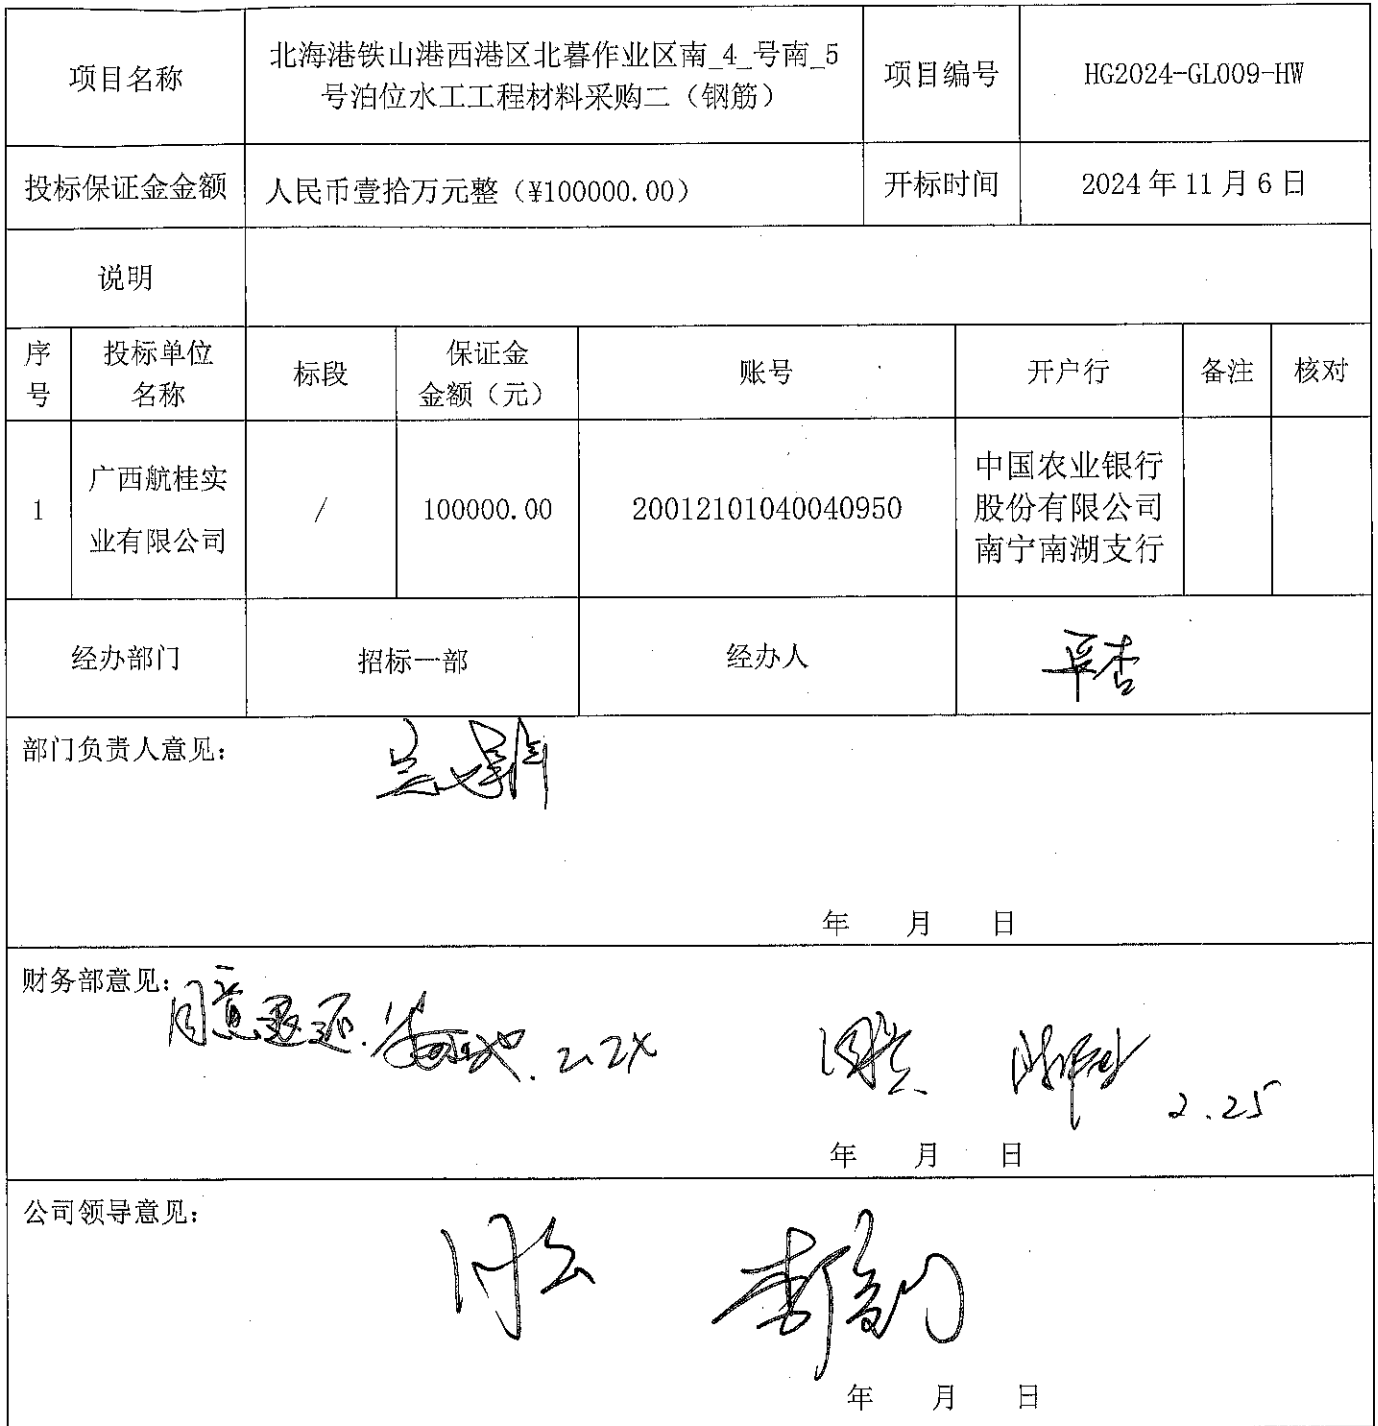 项目名称
北海港铁山港西港区北暮作业区南_4_号南_5
号泊位水工工程材料采购二（钢筋）
项目编号
HG2024-GL009-HW
投标保证金金额
人民币壹拾万元整（¥100000.00）
开标时间
2024年11月6日
说明
序
号
投标单位
名称
标段
保证金
金额（元）
账号
开户行
备注
核对
1
广西航桂实
业有限公司
/
100000.00
20012101040040950
中国农业银行
股份有限公司
南宁南湖支行
经办部门
招标一部
经办人
部门负责人意见：
年 月 日
财务部意见：
同意退还.
同意
2.25
年 月 日
公司领导意见：
同意
年 月 日